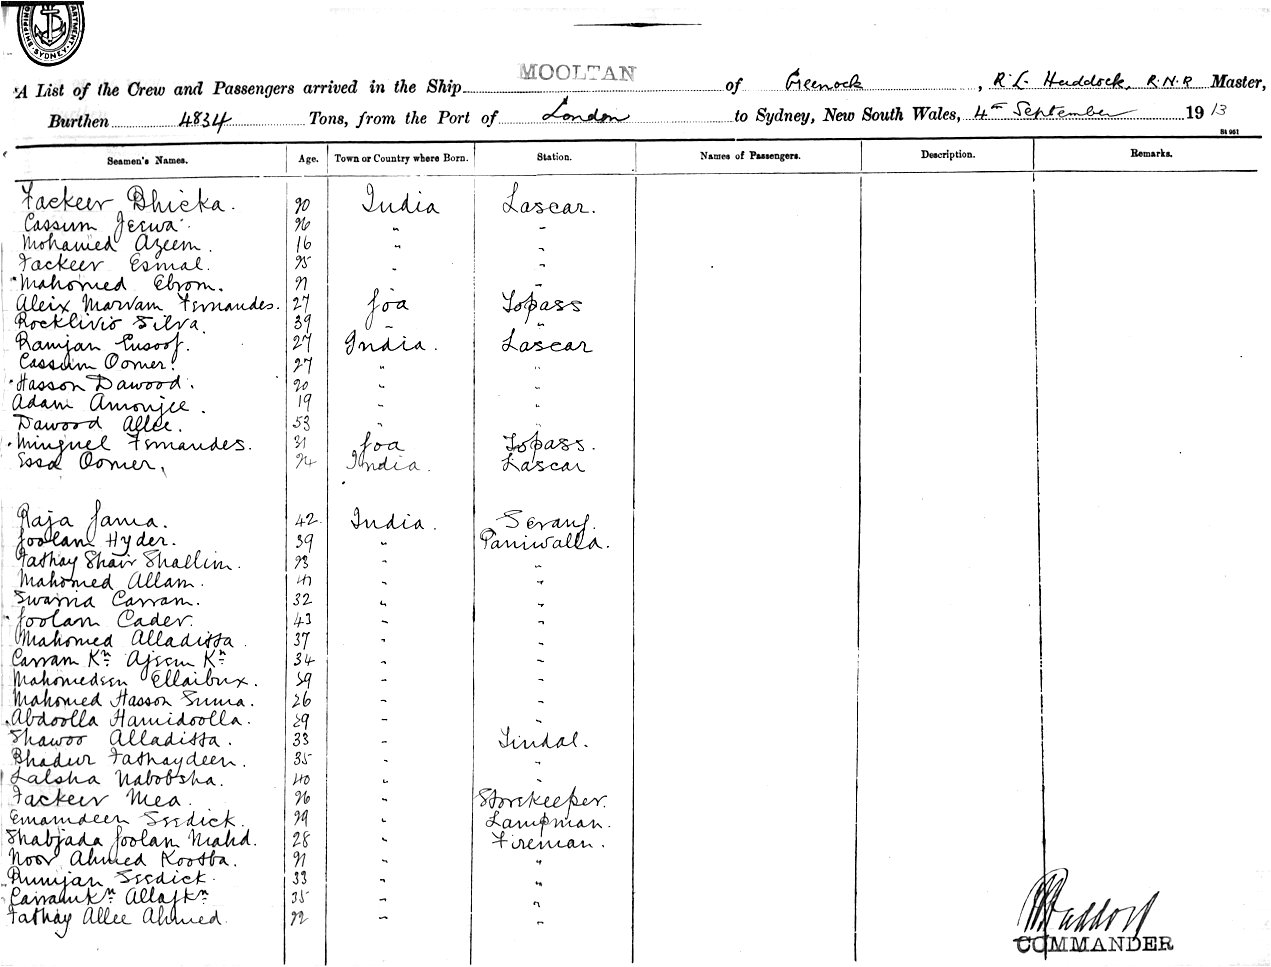 SHIPPING DEPARTMENT SYDNEY
A List of the Crew and Passengers arrived in the Ship MOOLTAN of Greenock, R. L. Haddock, R.N.R Master,
Burthen 4834 Tons, from the Port of London to Sydney, New South Wales, 4th September 1913
St 961
Seamen's Names. Age. Town or Country where Born. Station. Names of Passengers. Description. Remarks.
Fackeer Bhicka. 20 India Lascar.
Cassum Jeewa. 26 " "
Mohamed Azeem. 16 " "
Fackeer Esmal. 25 " "
Mahomed Ebrom. 21 "
Aleix Marvam Fernandes. 27 Goa Topass
Rocklivio Silva. 39 " "
Ramjan Eusoof. 27 India. Lascar
Cassum Oomer. 27 " "
Hasson Dawood. 20 " "
Adam Amonjee. 19 " "
Dawood Allee. 53 " "
Minguel Fernandes. 31 Goa Topass.
Essa Oomer, 24 India. Lascar
Raja Jama. 42 India. Serang.
Goolam Hyder. 39 " Paniwalla.
Fathay Shair Shallim. 23 " "
Mahomed Allam. 41 " "
Swarria Carram. 32 " "
Goolam Cader. 43 " "
Mahomed Alladitta. 37 " "
Carram Kn Ajeem Kn 34 " "
Mahomedeen Ellaibux. 39 " "
Mahomed Hasson Summa. 26 " "
Abdoolla Hamidoolla. 29 " "
Shawoo Alladitta. 33 " Tindal.
Bhadur Fathaydeen. 35 " "
Lalsha Nabobsha. 40 " "
Fackeer Mea. 26 " Storekeeper.
Emamdeen Seedick. 29 " Lampman.
Shabjada Goolam Mahd. 28 " Fireman.
Noor Ahmed Kootba. 21 " "
Rumjan Seedick. 33 " "
Carramkn Allafkn 35 " "
Fathay Allee Ahmed. 22 " "
RL Haddock
COMMANDER